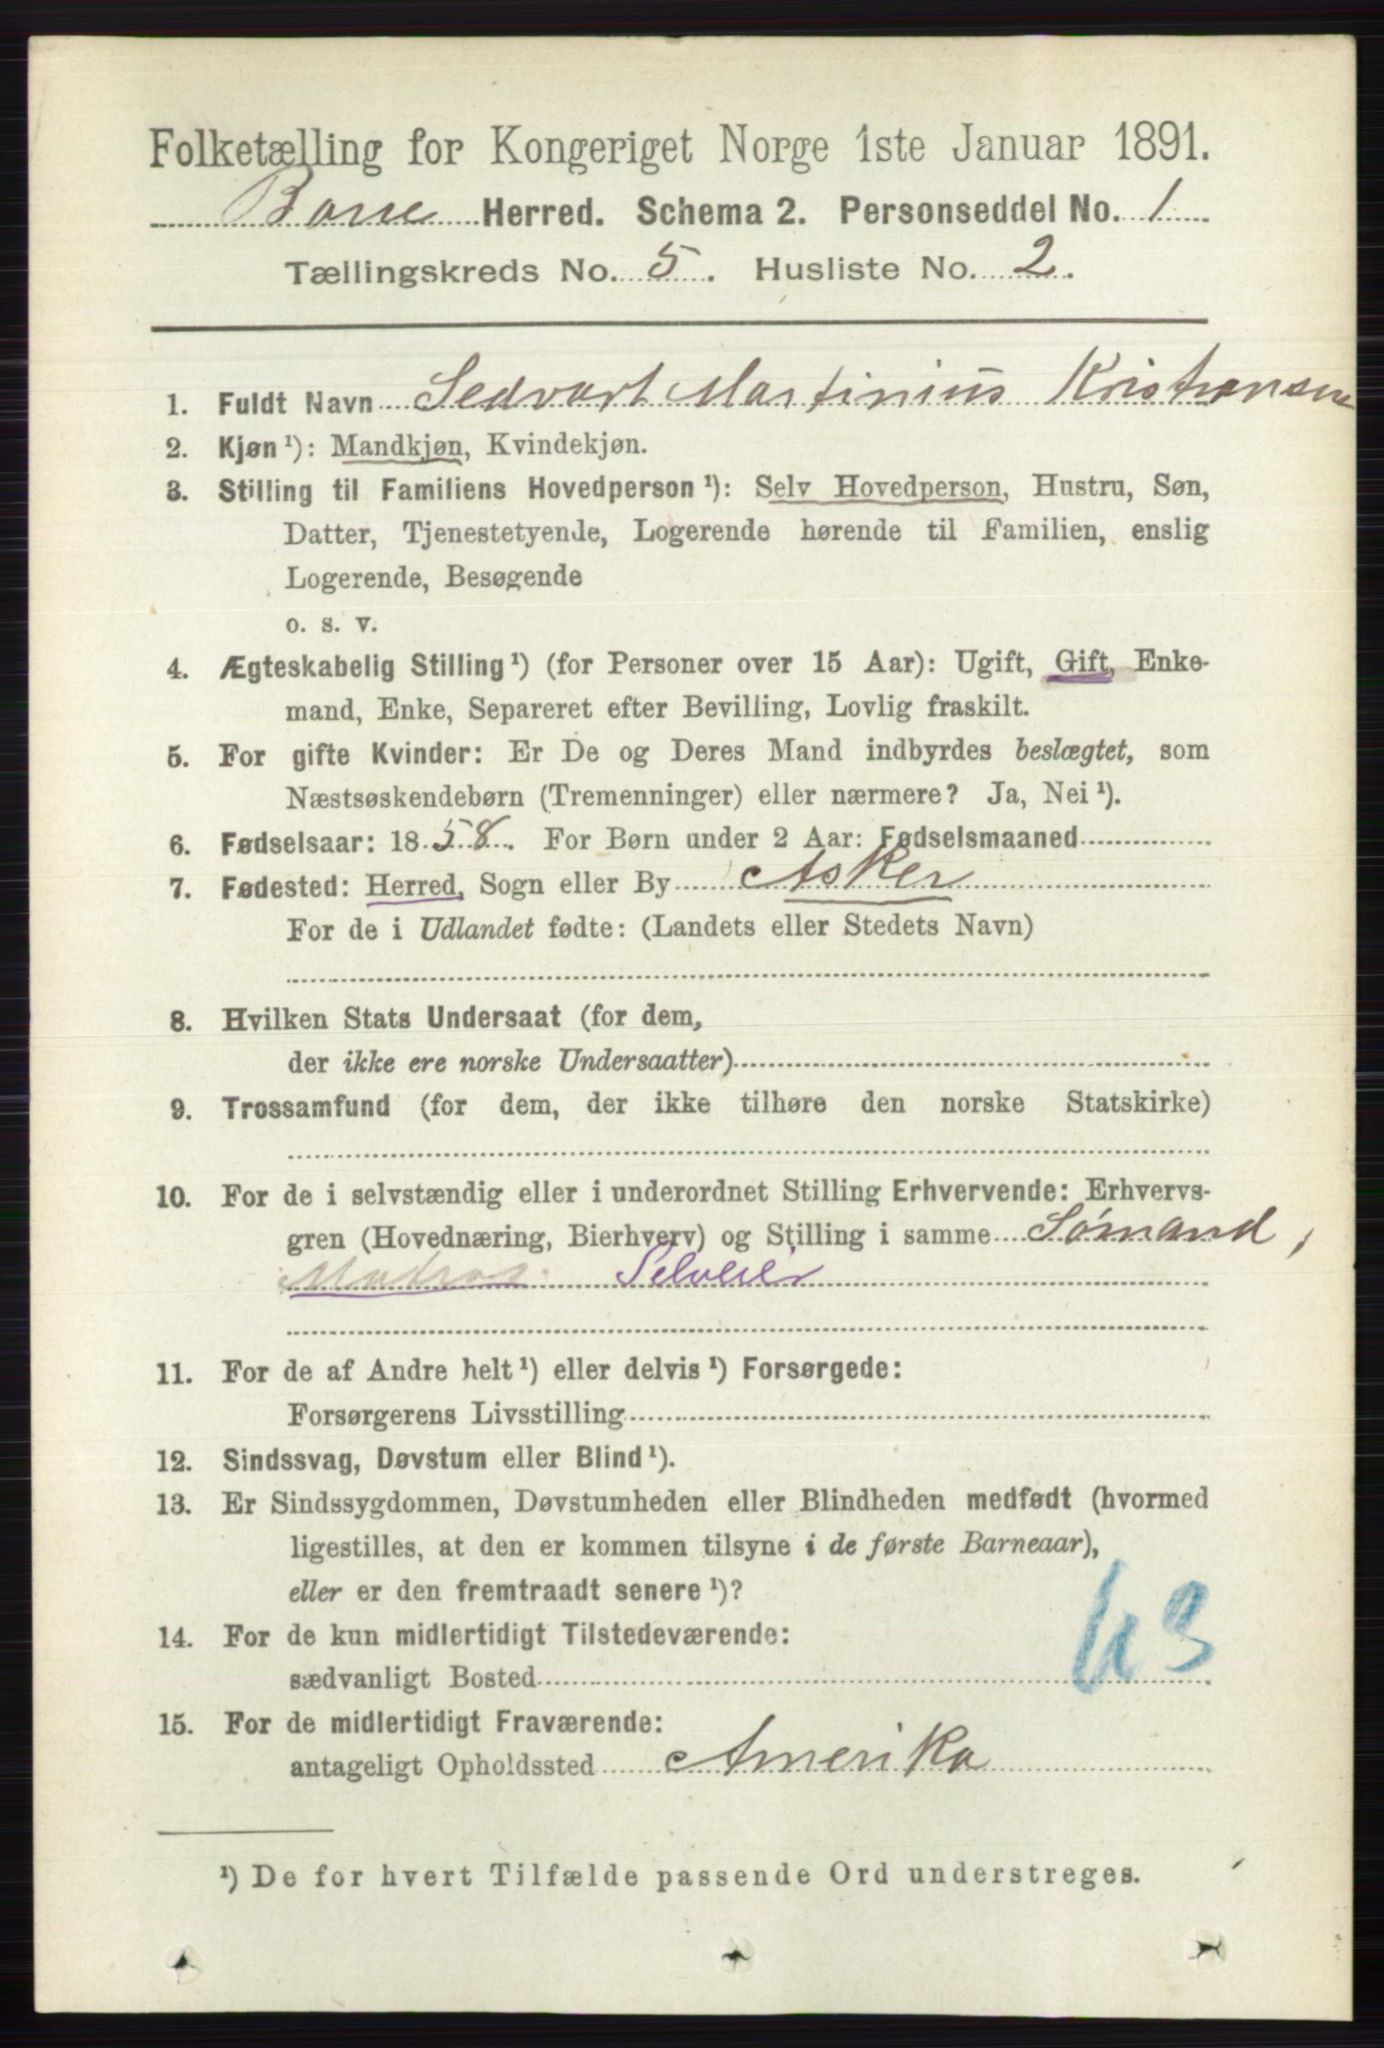 Folketælling for Kongeriget Norge 1ste Januar 1891.
Borre Herred. Schema 2. Personseddel No. 1
Tællingskreds No. 5. Husliste No. 2.
1. Fuldt Navn Sedvart Martinius Kristiansen
2. Kjøn ¹): Mandkjøn, Kvindekjøn.
3. Stilling til Familiens Hovedperson ¹): Selv Hovedperson, Hustru, Søn,
Datter, Tjenestetyende, Logerende hørende til Familien, enslig
Logerende, Besøgende
o. s. v.
4. Ægteskabelig Stilling ¹) (for Personer over 15 Aar): Ugift, Gift, Enke-
mand, Enke, Separeret efter Bevilling, Lovlig fraskilt.
5. For gifte Kvinder: Er De og Deres Mand indbyrdes beslægtet, som
Næstsøskendebørn (Tremenninger) eller nærmere? Ja, Nei ¹).
6. Fødselsaar: 1858. For Børn under 2 Aar: Fødselsmaaned
7. Fødested: Herred, Sogn eller By Asker
For de i Udlandet fødte: (Landets eller Stedets Navn)
8. Hvilken Stats Undersaat (for dem,
der ikke ere norske Undersaatter)
9. Trossamfund (for dem, der ikke tilhøre den norske Statskirke)
10. For de i selvstændig eller i underordnet Stilling Erhvervende: Erhvervs-
gren (Hovednæring, Bierhverv) og Stilling i samme Sømand,
Matros Selveier
11. For de af Andre helt ¹) eller delvis ¹) Forsørgede:
Forsørgerens Livsstilling
12. Sindssvag, Døvstum eller Blind ¹).
13. Er Sindssygdommen, Døvstumheden eller Blindheden medfødt (hvormed
ligestilles, at den er kommen tilsyne i de første Barneaar),
eller er den fremtraadt senere ¹)?
14. For de kun midlertidigt Tilstedeværende:
sædvanligt Bosted
15. For de midlertidigt Fraværende:
antageligt Opholdssted Amerika
¹) De for hvert Tilfælde passende Ord understreges.